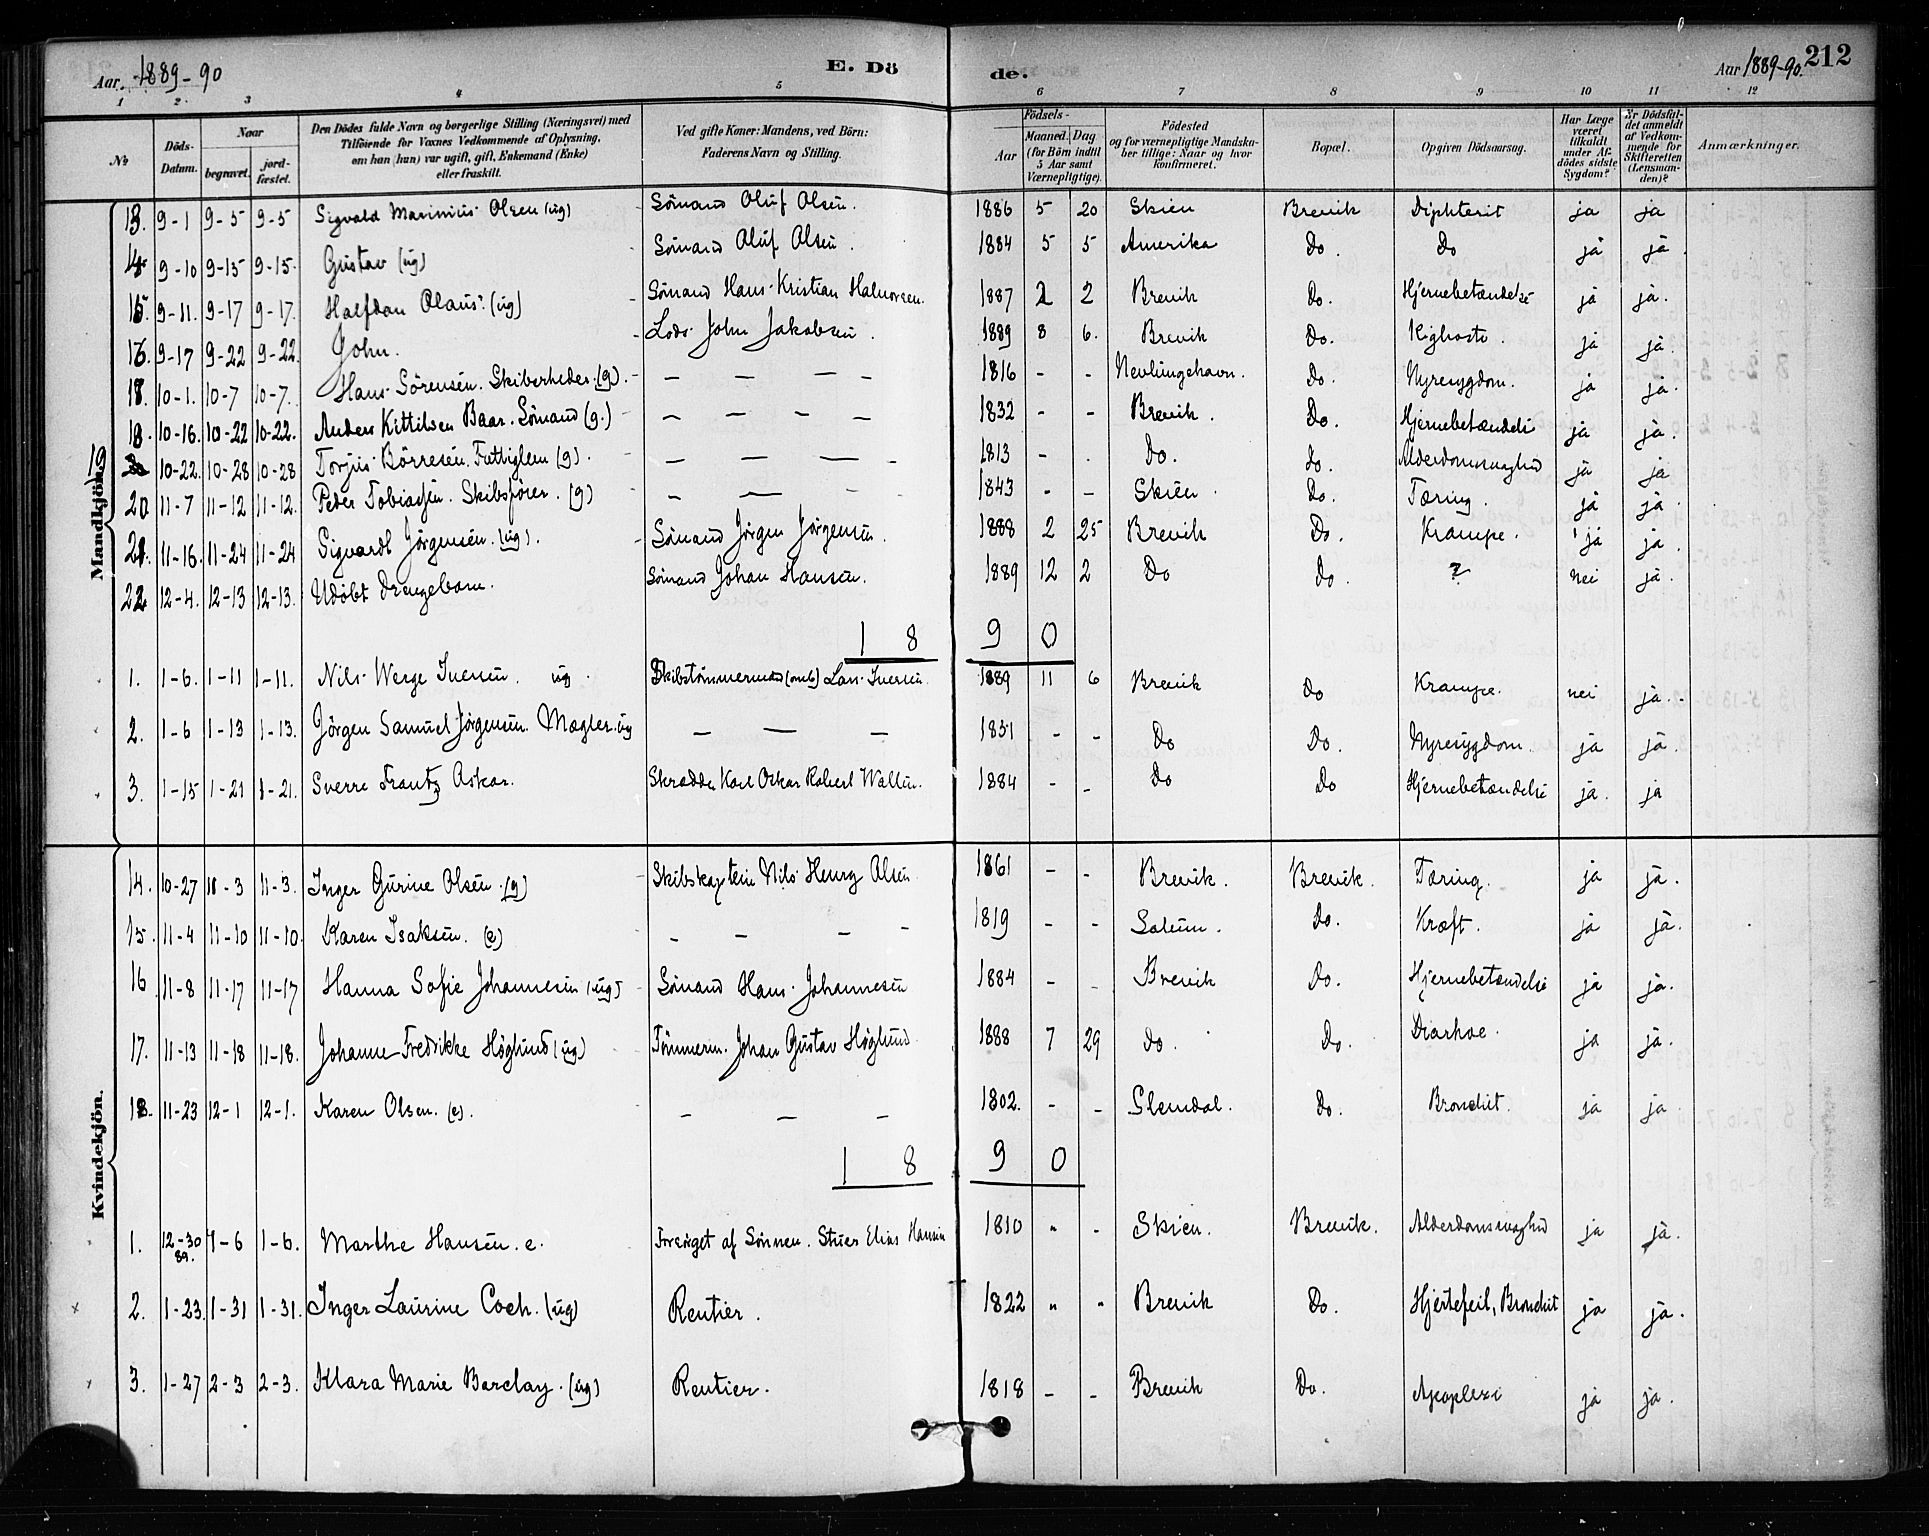 Aar 1889-90 E. Dö de. Aar 1889-90. 212
1 2 3 4 5 6 7 8 9 10 11 12
No Döds-Datum. Naar begravet. jordfæstet. Den Dödes fulde Navn og borgerlige Stilling (Næringsvei) med Tilföiende for Voxnes Vedkommende af Oplysning, om han (hun) var ugift, gift, Enkemand (Enke) eller fraskilt. Ved gifte Koner: Mandens, ved Börn: Faderens Navn og Stilling. Födsels- Aar Maaned. Dag (for Börn indtil 5 Aar samt Værnepligtige). Födested og for værnepligtige Mandskaber tillige: Naar og hvor konfirmeret. Bopæl. Opgiven Dödsaarsag. Har Læge været tilkaldt under Afdödes sidste Sygdom? Er Dödsfaldet anmeldt af Vedkommende for Skifteretten (Lensmanden)? Anmærkninger.
Mandkjön.
13. 9-1 9-5 9-5 Sigvald Marinius Olsen (ug) Sömand Oluf Olsen. 1886 5 20 Skien Brevik Diphterit ja ja
14. 9-10 9-15 9-15. Gustav (ug) Sömand Oluf Olsen. 1884 5 5 Amerika Do. Do ja ja.
15. 9-11. 9-17 9-17. Halfdan Olaus. (ug) Sömand Hans Kristian Halvorsen. 1887 2 2 Brevik Do. Hjernebetændelse ja ja.
16. 9-17 9-22 9-22. John. Lods John Jakobsen. 1889 8 6. Brevik Do. Kighoste. ja ja.
18. 10-1. 10-7 10-7. Hans Sörensen. Skiberheder. (g). — — — — 1816 - - Nevlunghavn. Do. Nyresygdom. ja ja.
18. 10-16. 10-22 10-22. Anders Kittilsen Baar. Sömand (g.) — — — — 1832 - - Brevik. Do. Hjernebetændelse ja ja.
19 10-22. 10-28 10-28 Torjus Börresen. Fattiglem (g). — — — - 1813 - - Do. Do. Alderdomssvaghed ja ja
20. 11-7 11-12 11-12. Peder Tobiassen. Skibsförer. (g) — — - - 1843 - - Skien. Do. Tæring. ja ja.
21. 11-16. 11-24 11-24 Sigvardt Jörgensen. (ug). Sömand Jörgen Jörgensen. 1888 2 25 Brevik Do. Krampe. ja ja.
22 12-4. 12-13 12-13. Udöbt Drengebarn. Sömand Johan Hansen. 1889 12 2 Do Do. ? nei ja.
1 8 9 0
1. 1-6. 1-11 1-11. Nils Werge Iversen. ug. Skibstömmermand (omb) Lars Iversen. 1889 11 6 Brevik Do Krampe. nei ja.
2. 1-6 1-13 1-13. Jörgen Samuel Jörgensen. Mægler. ug — — — 1831 - - Do Do. Nyresygdom. ja ja.
3. 1-15 1-21 1-21. Sverre Frantz Oskar. Skrædder Karl Oskar Robert Wallin. 1884 - - Do Do Hjernebetændelse ja. ja
Kvindekjön.
14. 10-27 11-3 11-3. Inger Gurine Olsen. (g) Skibskaptein Nils Henry Olsen 1861 - - Brevik. Brevik. Tæring. ja ja.
15. 11-4 11-10 11-10. Karen Isaksen. (e) — — — - 1819 - - Solum. Do. Kræft. ja ja.
16 11-8 11-17 11-17 Hanna Sofie Johannesen (ug) Sömand Hans Johannesen 1884 - - Brevik Do. Hjernebetændelse ja ja.
17. 11-13 11-18 11-18. Johanne Fredrikke Höglund (ug) Tömmerm. Johan Gustav Höglund. 1888 7 29 Do. Do. Diarhoe. ja ja.
18. 11-23 12-1 12-1. Karen Olsen. (e). — — — 1802. - - Slemdal. Do. Bronchit. ja ja
1 8 9 0
1. 12-30 89. 1-6 1-6. Marthe Hansen. e. Forsörget af Sönnen. Stuer Elias Hansen 1810 " - Skien. Brevik. Alderdomssvaghed ja ja.
2. 1-23. 1-31 1-31. Inger Laurine Coch. (ug) Rentier. 1822 " " Brevik Do. Hjertefeil, Bronchit ja ja.
3. 1-27 2-3 2-3. Klara Marie Barclay. (ug) Rentier. 1818 - - Brevik Do. Apoplexi ja ja.